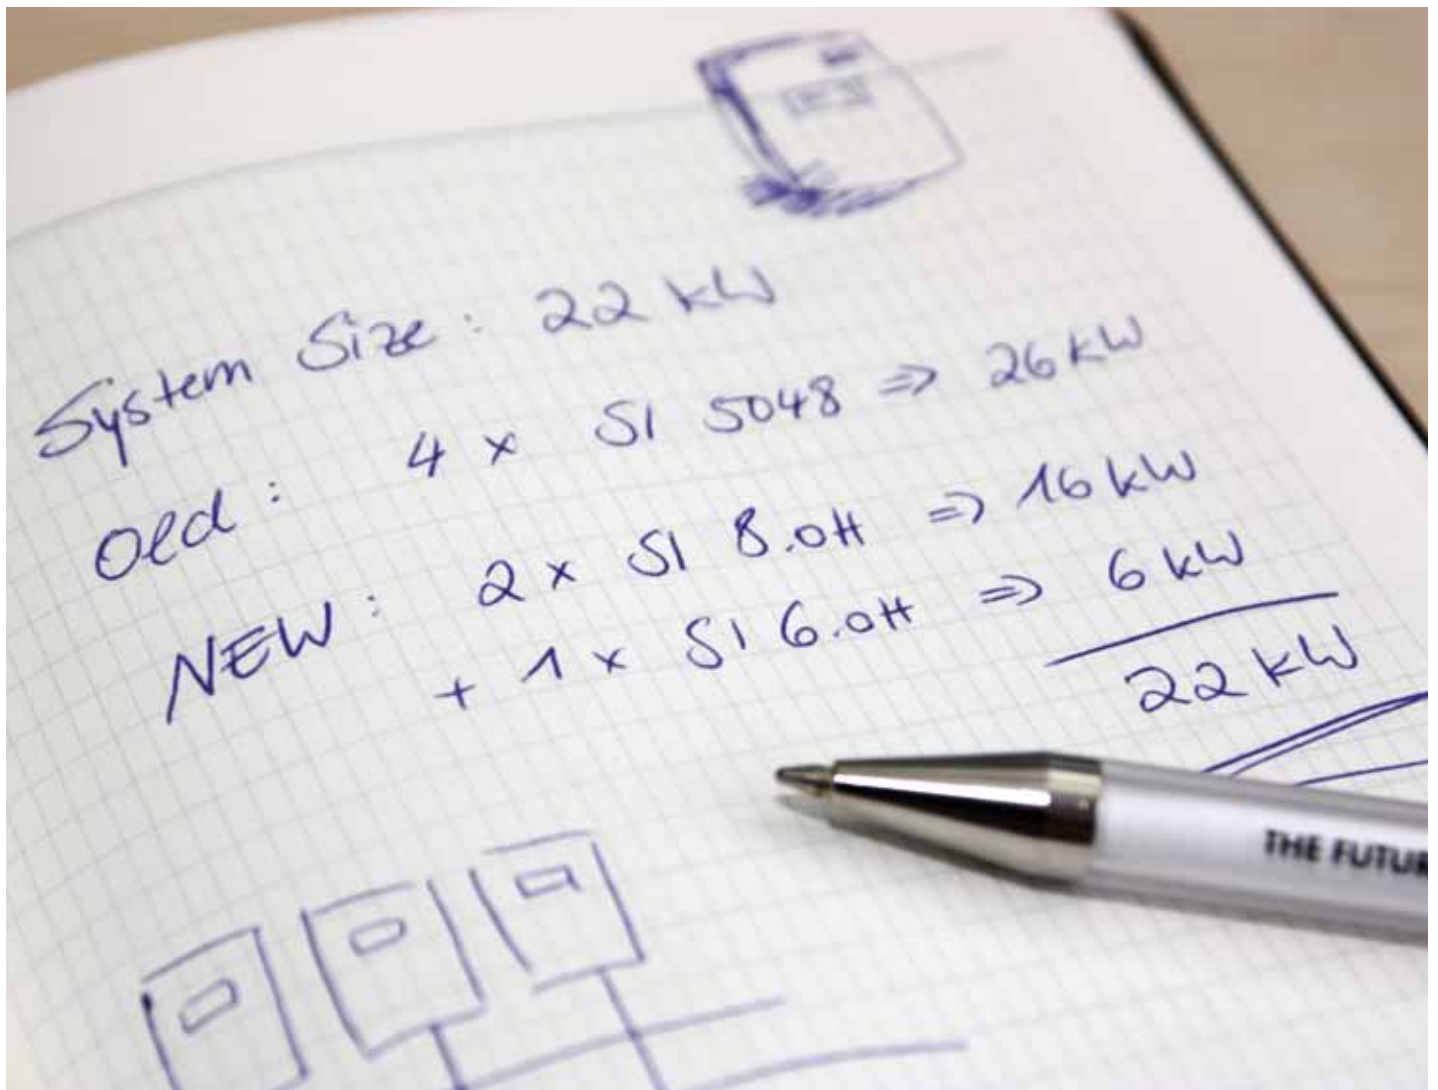 System Size: 22 kW
Old: 4 x SI 5048 => 26 kW
NEW: 2 x SI 8.0H => 16 kW
+ 1 x SI 6.0H => 6 kW
22 kW
THE FUTUR